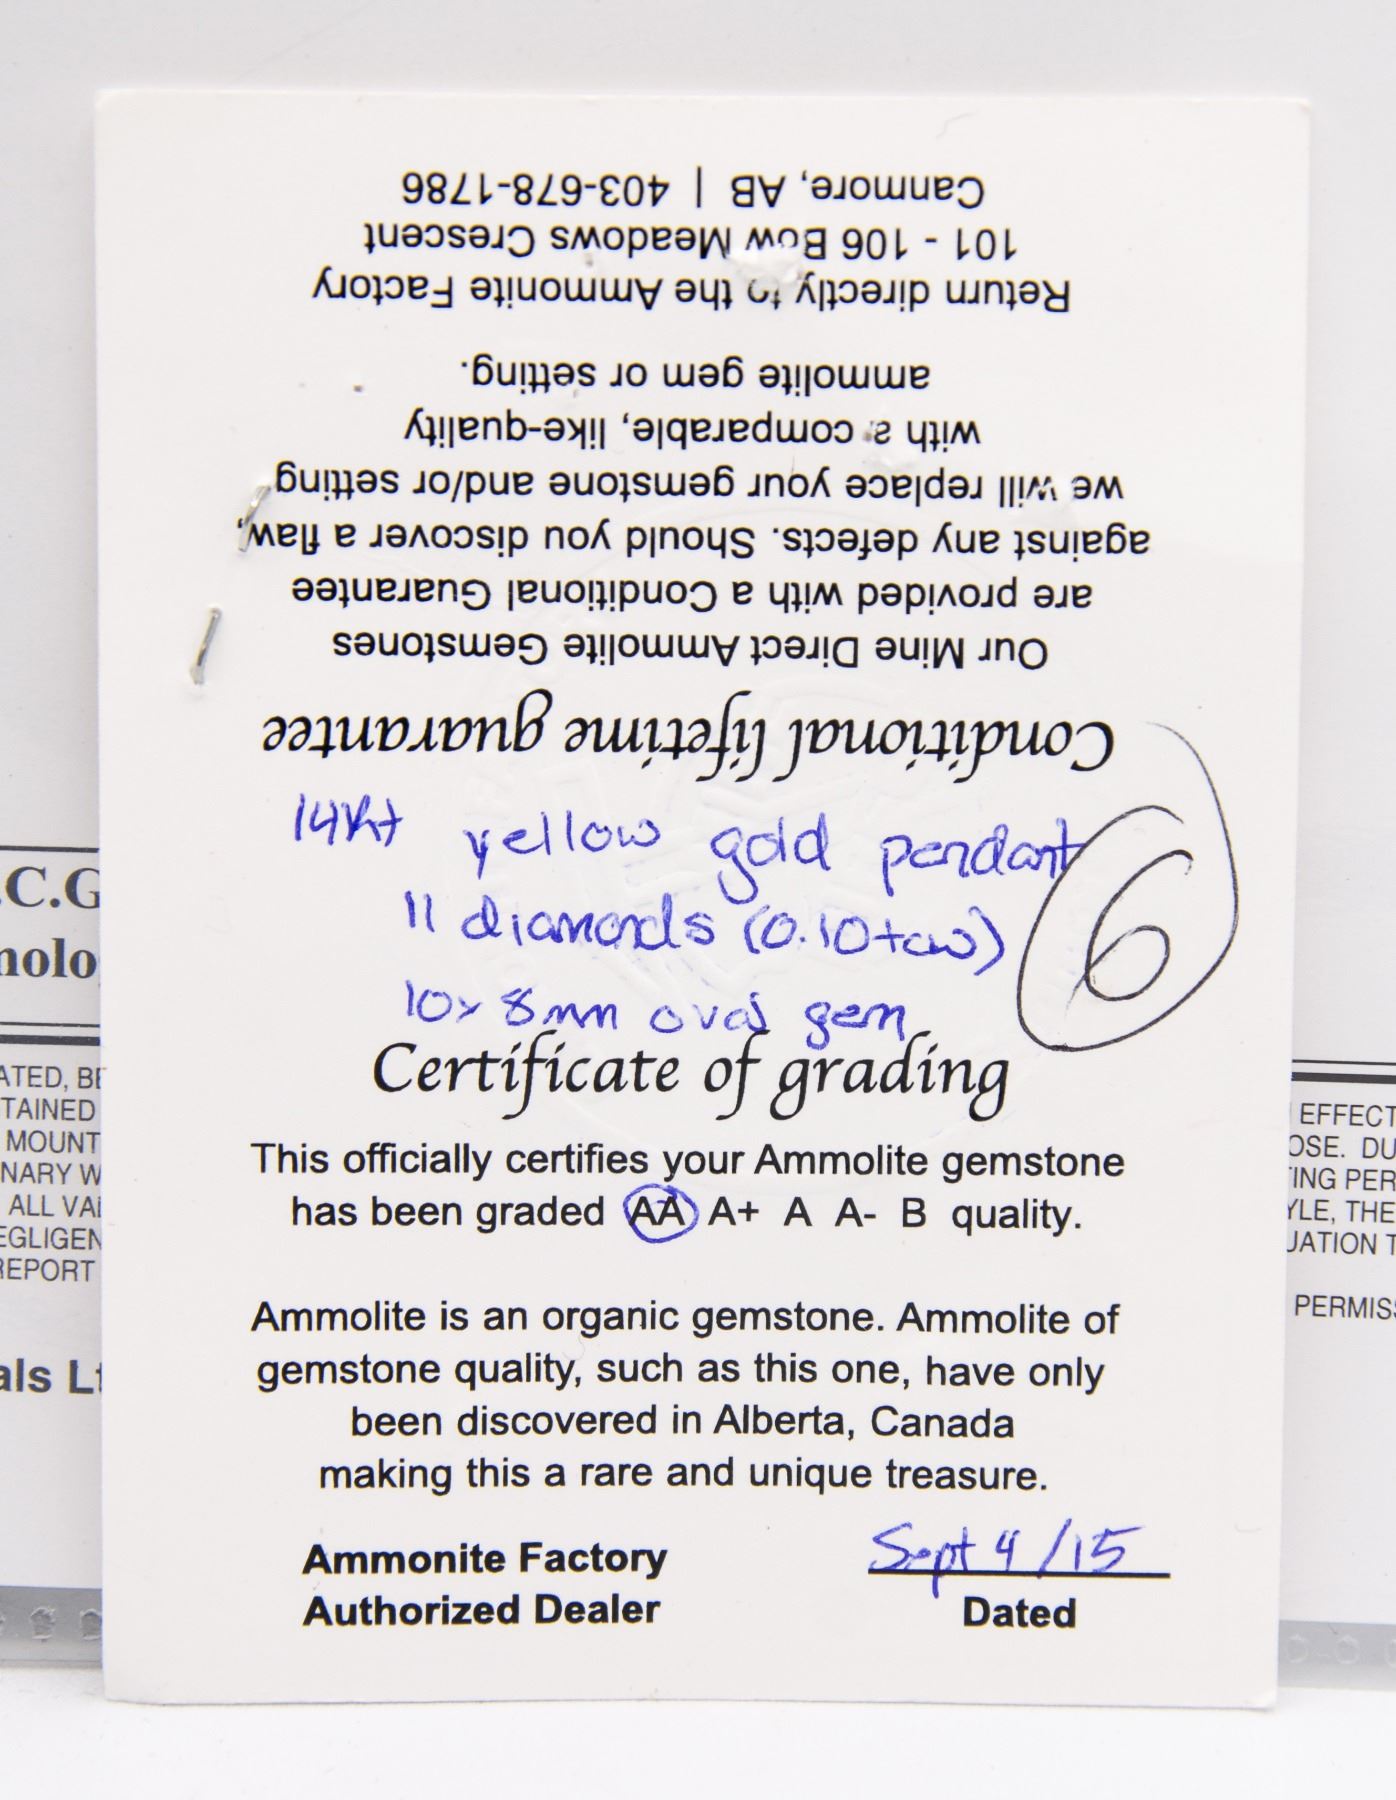 Canmore, AB | 403-678-1786
101 - 106 Bow Meadows Crescent
Return directly to the Ammonite Factory
ammolite gem or setting.
with a comparable, like-quality
we will replace your gemstone and/or setting
against any defects. Should you discover a flaw,
are provided with a Conditional Guarantee
Our Mine Direct Ammolite Gemstones
Conditional lifetime guarantee
14kt yellow gold pendant
11 diamonds (0.10tcw)
6
10x8mm oval gem
Certificate of grading
This officially certifies your Ammolite gemstone
has been graded AA A+ A A- B quality.
Ammolite is an organic gemstone. Ammolite of
gemstone quality, such as this one, have only
been discovered in Alberta, Canada
making this a rare and unique treasure.
Ammonite Factory
Authorized Dealer
Sept 4/15
Dated
.C.G
nolo
ATED, BE
TAINED
MOUNT
NARY W
ALL VAL
EGLIGEN
REPORT
als Lt
EFFECT
OSE. DU
TING PER
YLE, THE
UATION T
PERMISS